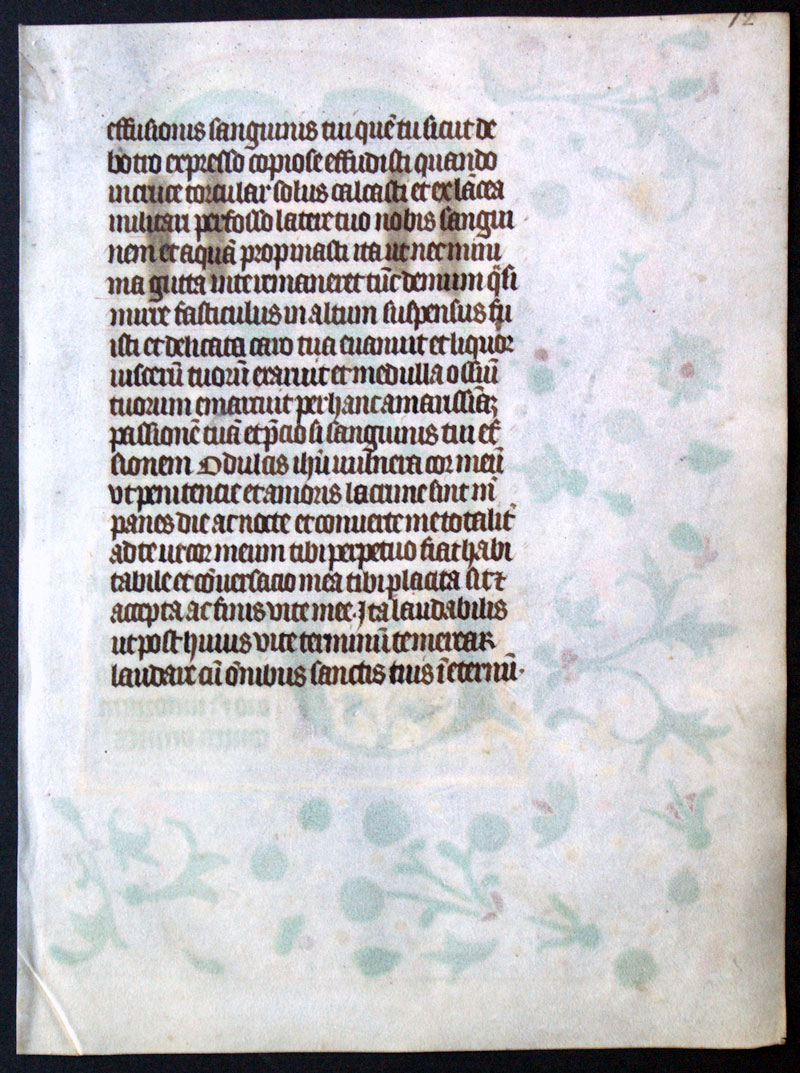 12
effusionis sanguinis tui quē tu sicut de
botro expresso copiose effudisti quando
in cruce torcular solus calcasti et ex lācea
militari perfosso latere tuo nobis sangui
nem et aquā propinasti ita ut nec mini
ma gutta in te remaneret tūc demum q̄si
mirre fasciculus in altum suspensus fu
isti et delicata caro tua euanuit et liquor
uiscerū tuorū exaruit et medulla ossiū
tuorum emarcuit per hanc amarissīaꝫ
passionē tuā et p̄ciosi sanguinis tui ef
sionem O dulcis ihū uulnera cor meū
vt penitencie et amoris lacrime sint m̄
panes die ac nocte et conuerte me totalit̄
ad te ut cor meum tibi perpetuo fiat habi
tabile et cōuersacio mea tibi placita sit ⁊
accepta ac finis vite mee. Ita laudabilis
ut post huius vite terminū te merear
laudare cū ōnibus sanctis tuis ī eternū.